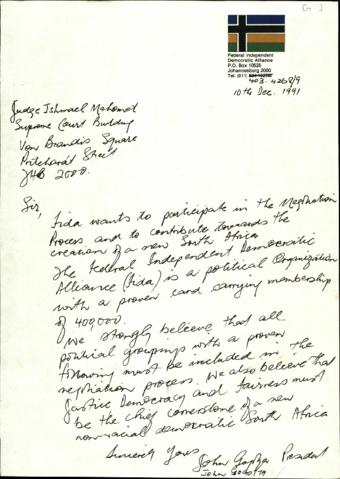 Federal Independent
Democratic Alliance
P.O. Box 10528
Johannesburg 2000
Tel: (011)
403-4268/9
10th Dec. 1991
Judge Ishmael Mahomed
Supreme Court Building
Von Brandis Square
Pritchardt Street
JHB 2000.
Sir,
Fida wants to participate in the Negotiation
Process and to contribute towards the
creation of a new South Africa
The Federal Independent Democratic
Alliance (Fida) is a political Organization
with a proven card carrying membership
of 400,000.
We strongly believe that all
political groupings with a proven
following must be included in the
negotiation process. We also believe that
Justice Democracy and fairness must
be the chief cornerstone of a new
non-racial democratic South Africa
Sincerely Yours
John Gogotya President
JOHN GOGOTYA